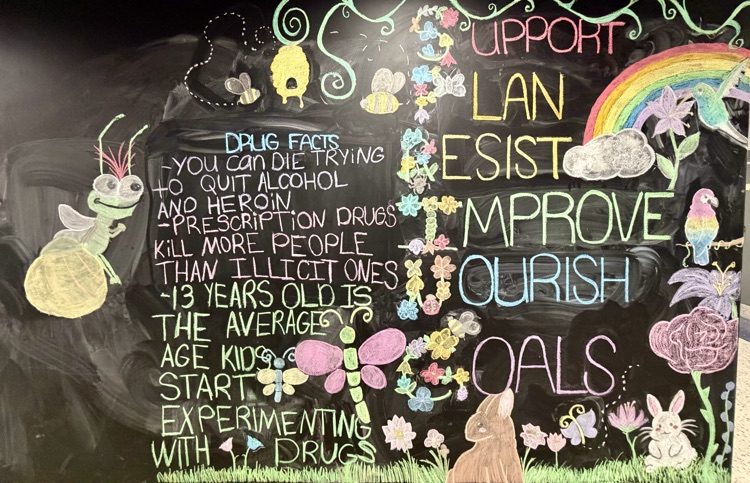 DRUG FACTS
-YOU CAN DIE TRYING
TO QUIT ALCOHOL
AND HEROIN
-PRESCRIPTION DRUGS
KILL MORE PEOPLE
THAN ILLICIT ONES
-13 YEARS OLD IS
THE AVERAGE
AGE KIDS
START
EXPERIMENTING
WITH DRUGS
SUPPORT
PLAN
RESIST
IMPROVE
NOURISH
GOALS